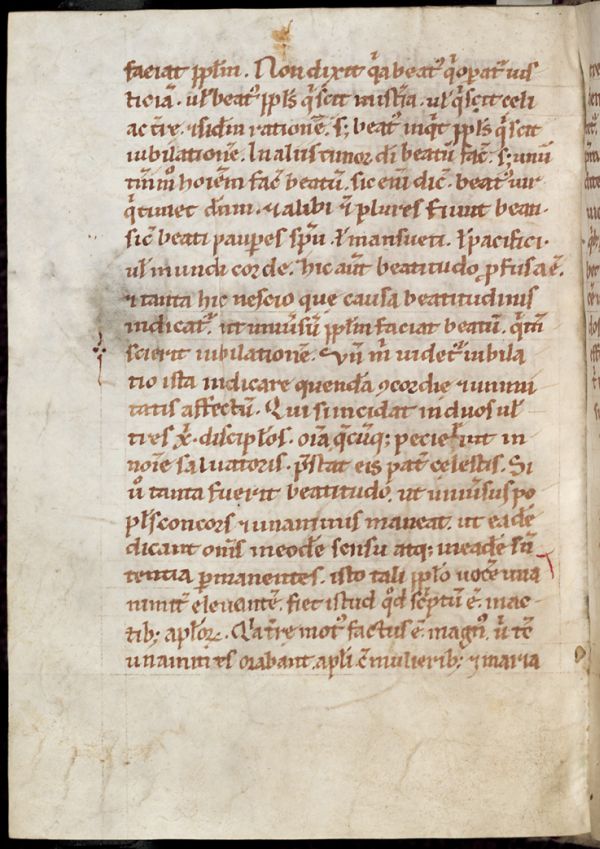 faciat ppl̄m. Non dixit q̇a beat᷒ q̇ opat᷒ uis
ticiā. ul̄ beat᷒ ppl̄s q̇ scit mistia. ul̄ q̇ scit celi
ac tr̄e. ⁊ sidm̄ rationē. s; beat᷒ inqt ppl̄s q̇ scit
iubilationē. In aliis timor dī beatū fac̄. s; unū
tm̄m̊ hoīem fac̄ beatū. sic eni dic̄. beat᷒ uir
q̇ timet dn̄m. ⁊ alibi ⁊ plures fiunt beati.
sic̄ beati paupes spū. ul̄ mansueti. ul̄ pacifici.
ul̄ mundi corde. hic aūt beatitudo p̱fusa ē.
⁊ tanta hic nescio que causa beatitudinis
indicat᷒. ut uniūsū ppl̄m faciat beatū. q̇ m̄
scierit iubilationē. Vn̄ m̄ uidet᷒ iubila
tio ista indicare quendā ꝯcordie ⁊ unini
tatis affectū. Qui si incidat in duos ul̄
tres x̄. discipl̄os. oīa q̄cūq; pecierint in
noīe saluatoris. p̄stat eis pat̄ celestis. Si
ů tanta fuerit beatitudo, ut uniūsus po
pl̄s concors ⁊ unanimis maneat. ut eadē
dicant om̄s in eodē sensu atq; in eadē sn̄
tentia p̱manentes. isto tali ppl̄o uocē una
nimit̄ eleuantē. fiet istud qd̊ sc̄ptū ē. in ac
tib; apl̄oꝝ. Q̇a tr̄e mot᷒ factus ē. magn᷒. u̇ tē
unamit̄ es orabant. apl̄i c̄ mulierib; ⁊ maria